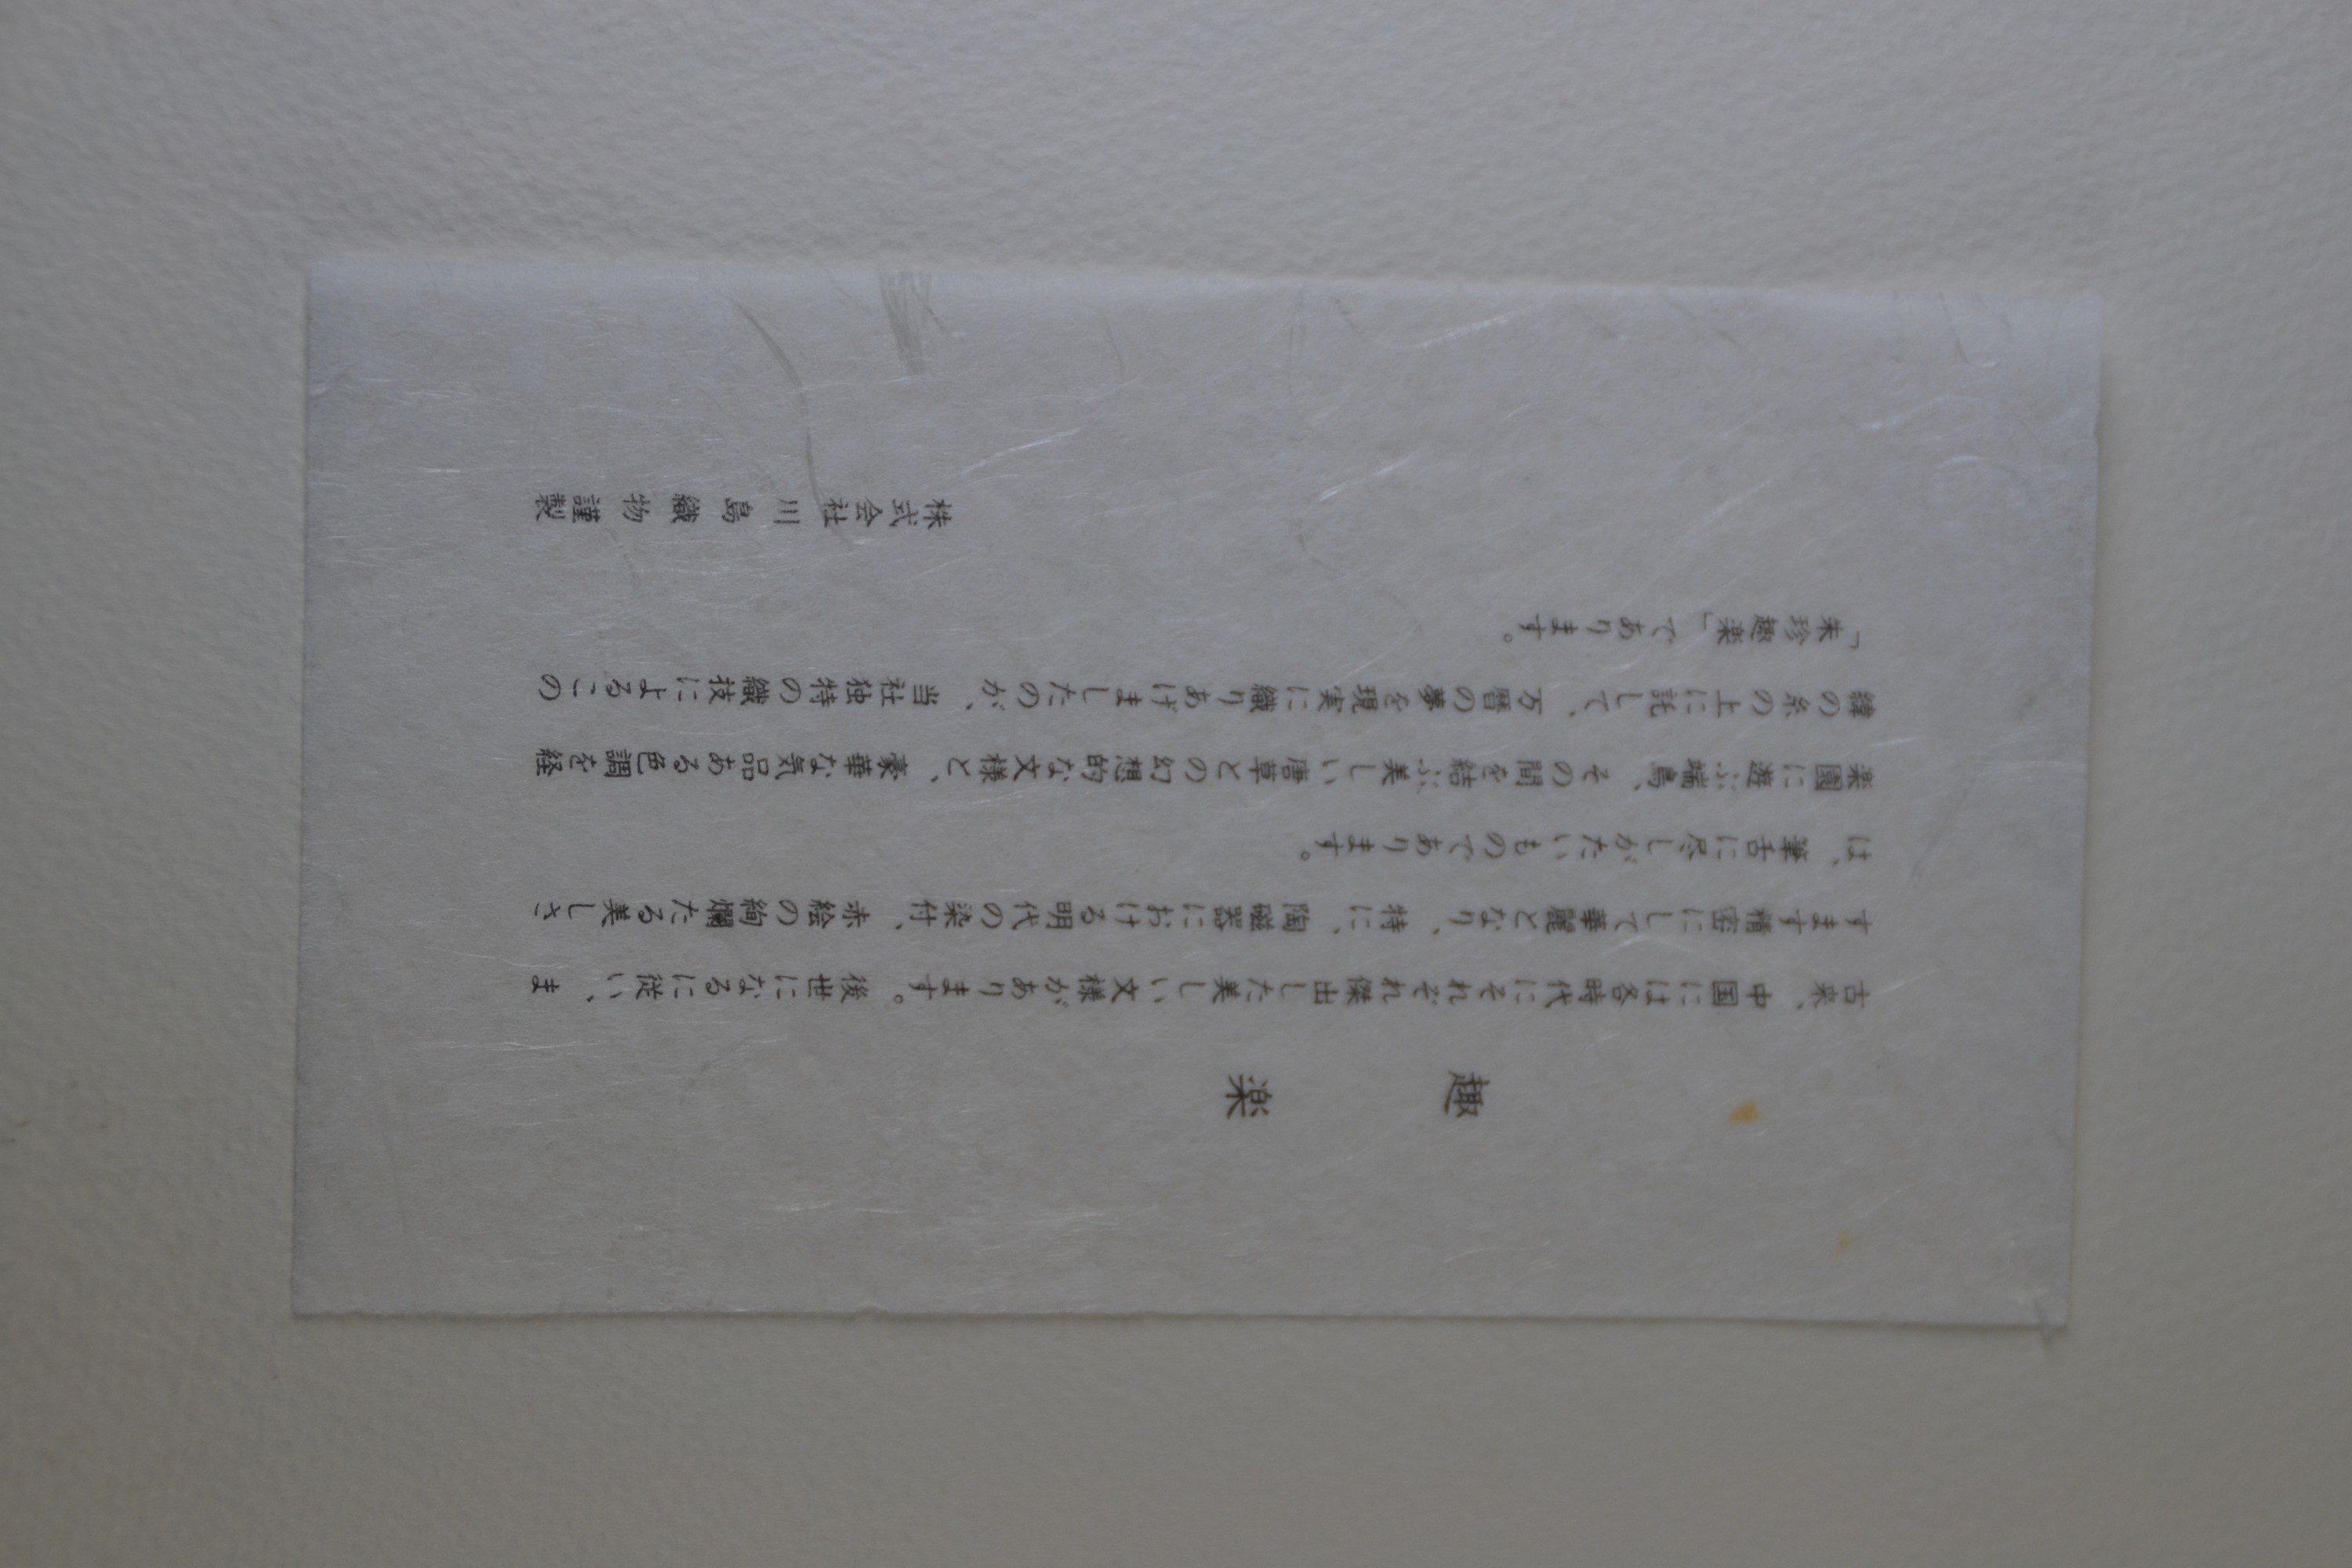 趣楽
古来、中国には各時代にそれぞれ傑出した美しい文様があります。後世になるに従い、ま
すます精密にして華麗となり、特に、陶磁器における明代の染付、赤絵の絢爛たる美しさ
は、筆舌に尽しがたいものであります。
楽園に遊ぶ端鳥、その間を結ぶ美しい唐草との幻想的な文様と、豪華な気品ある色調を経
緯の糸の上に託して、万暦の夢を現実に織りあげましたのが、当社独特の織技によるこの
「朱珍趣楽」であります。
株式会社川島織物謹製